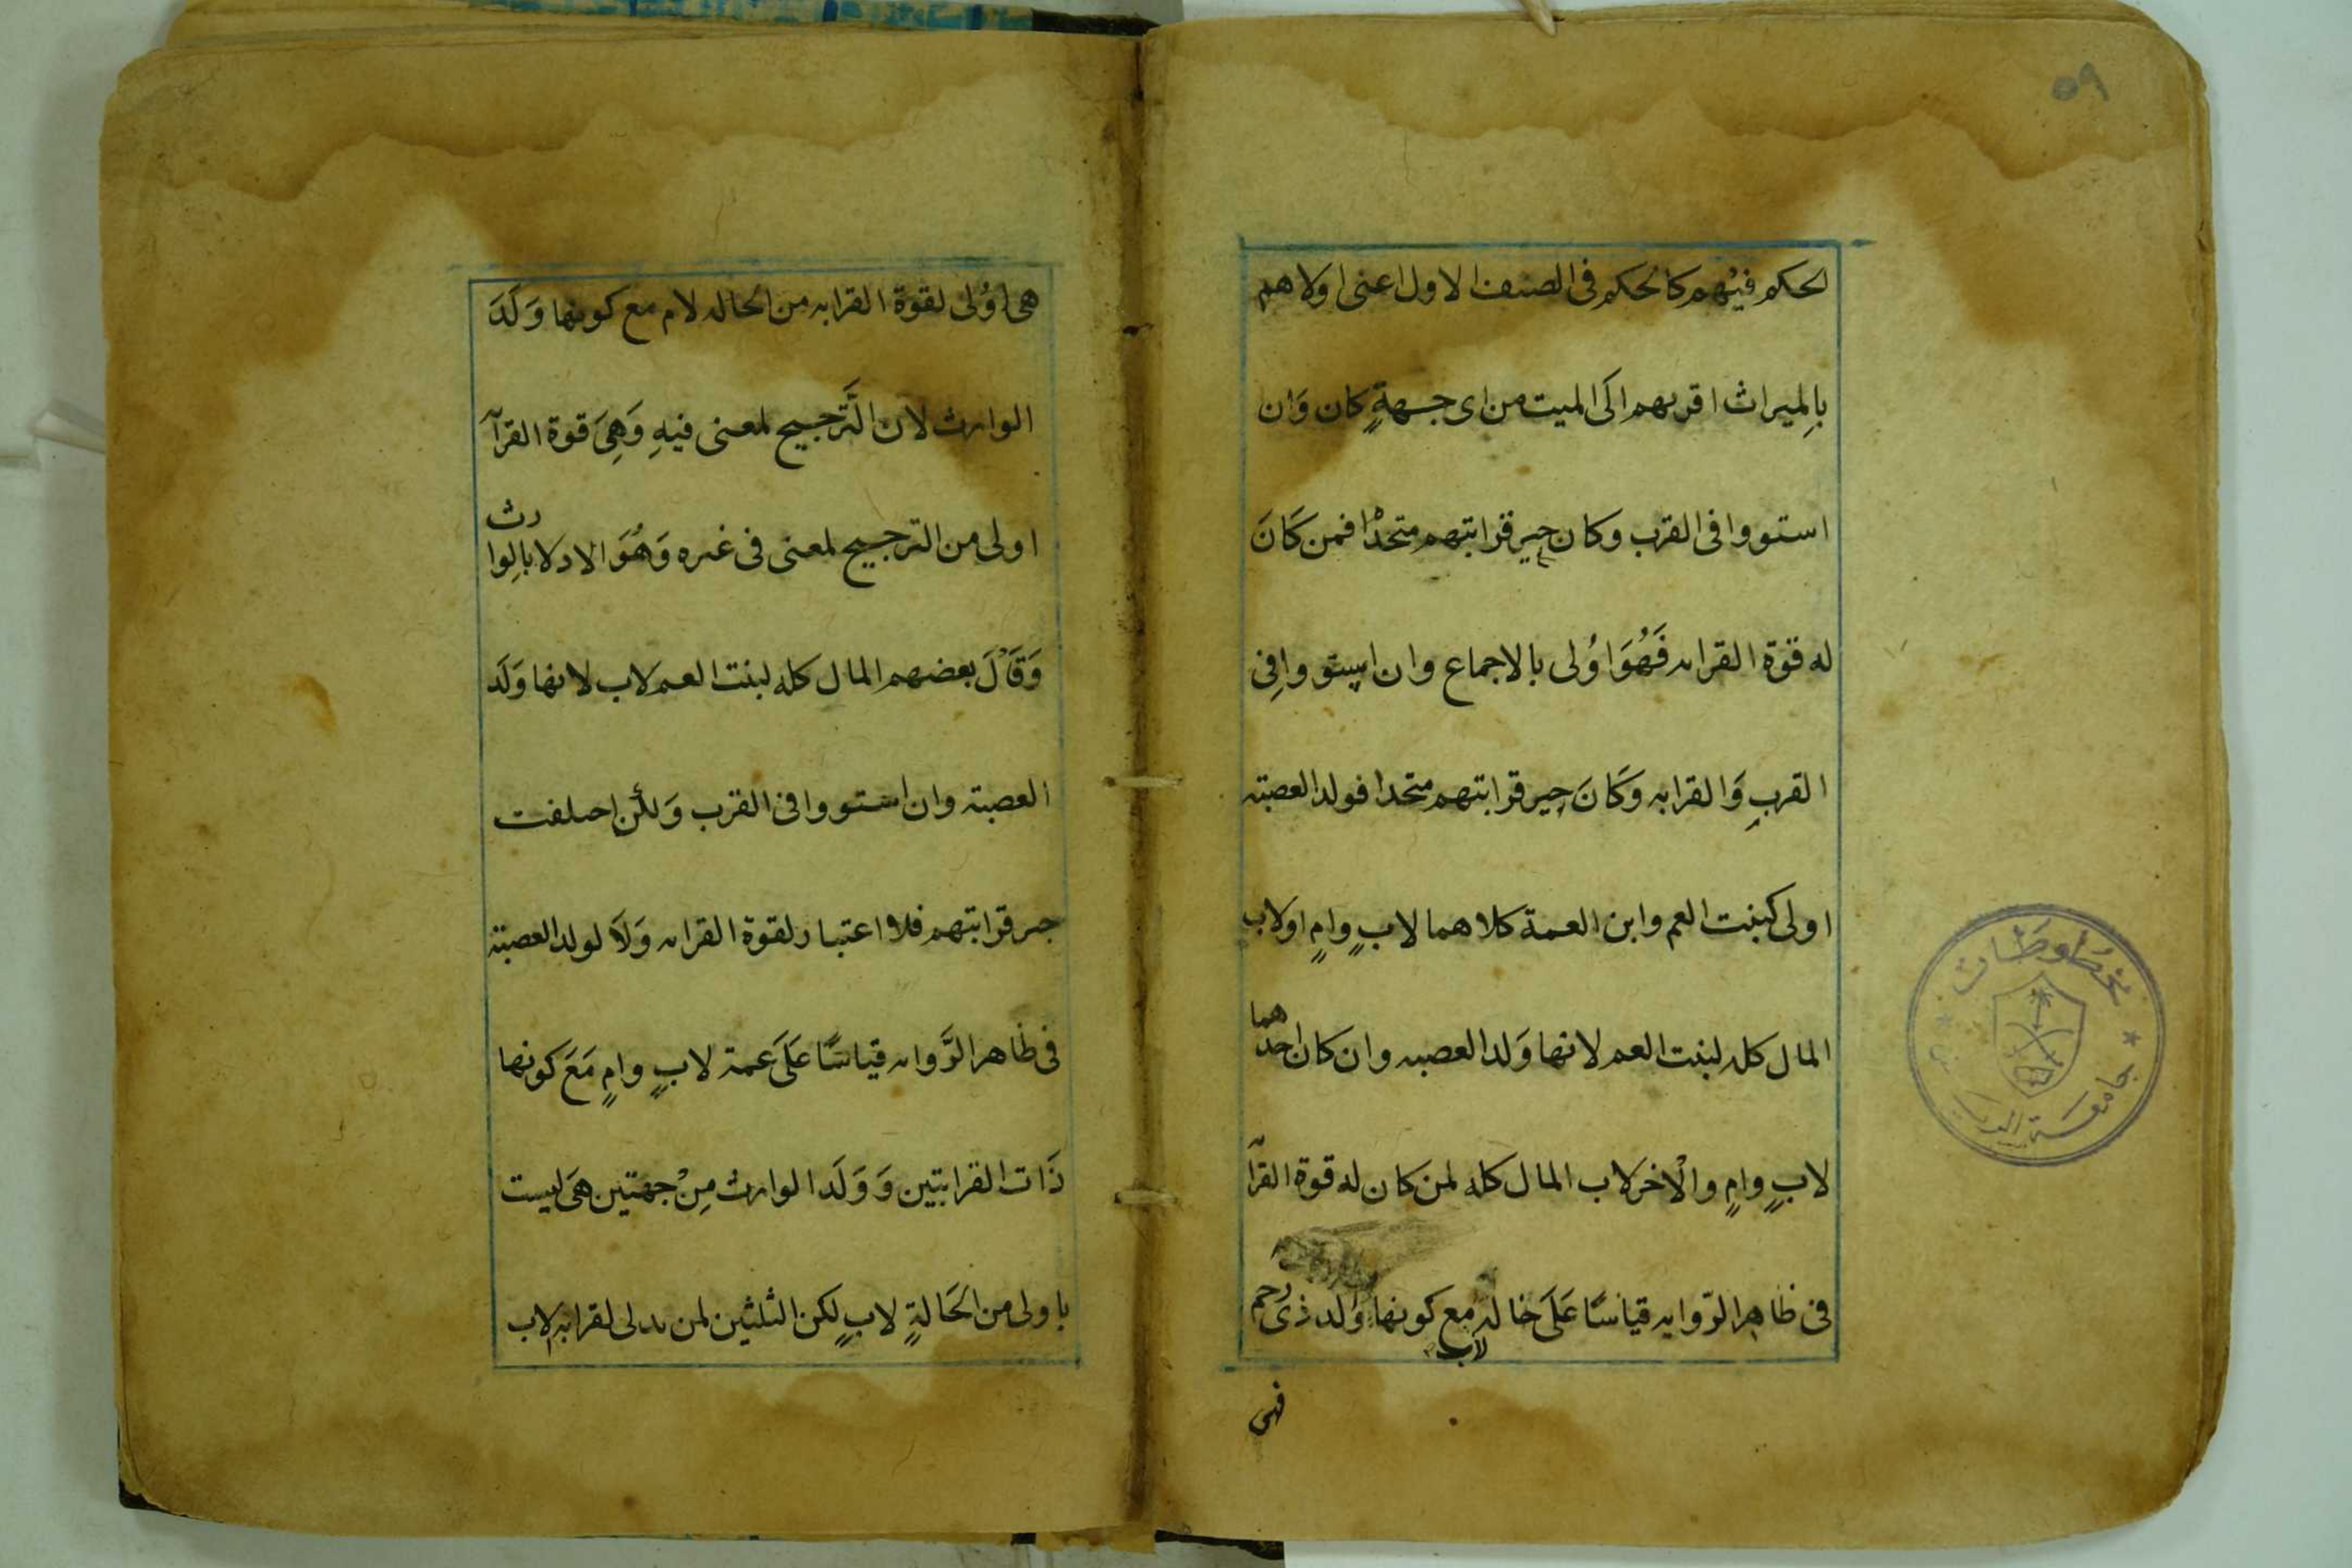 ٥٩
الحكم فيهم كالحكم فى الصنف الاول اعنى اولاهم
بِالميراث اقربهم الَى الميت من اى جهةٍ كان وَان
استووا فى القرب وكان حيز قرابتهم متحدًا فمن كَانَ
له قوة القرابه فَهُوَ اوُلى بالاجماع وان استووا فِى
القربِ وَالقرابه وَكَانَ حيز قرابتهم متحدا فولد العصبة
اولى كبنت العم وابن العمة كلاهما لابٍ وامٍ اولاب
المال كله لبنت العم لانها وَلد العصبه وان كان احدهما
لابٍ وامٍ والْاخر لاب المال كله لمن كان له قوة القرآ
فى ظاهر الرّوايه قياسًا عَلَى خاله لاب مع كونها وَلد ذى رحم
فهى
هى اوُلى لقوة القرابه من الخاله لام مع كونها وَلَدَ
الوارث لان التَّرجيح لمعنى فيهِ وَهِىَ قوة القرآ
اولى من الترجيح لمعنى فى غيره وَهُوَ الادلا بالِوارث
وَقَالَ بعضهم المال كله لبنت العم لاب لانها وَلَد
العصبة وان استووا فى القرب وَلكن اختلفت
حيز قرابتهم فلا اعتبار لقوة القرابه وَلَا لولد العصبة
فى ظاهر الرَّوايه قياسًا عَلَى عمة لابٍ وامٍ مَعَ كونها
ذَات القرابتين وَوَلَد الوارث مِنْ جهتين هىَ ليست
باولى من الخَالةٍ لابٍ لكن الثلثين لمن يدلى لقرابة لاب
مخطوطات
جامعة الرياض